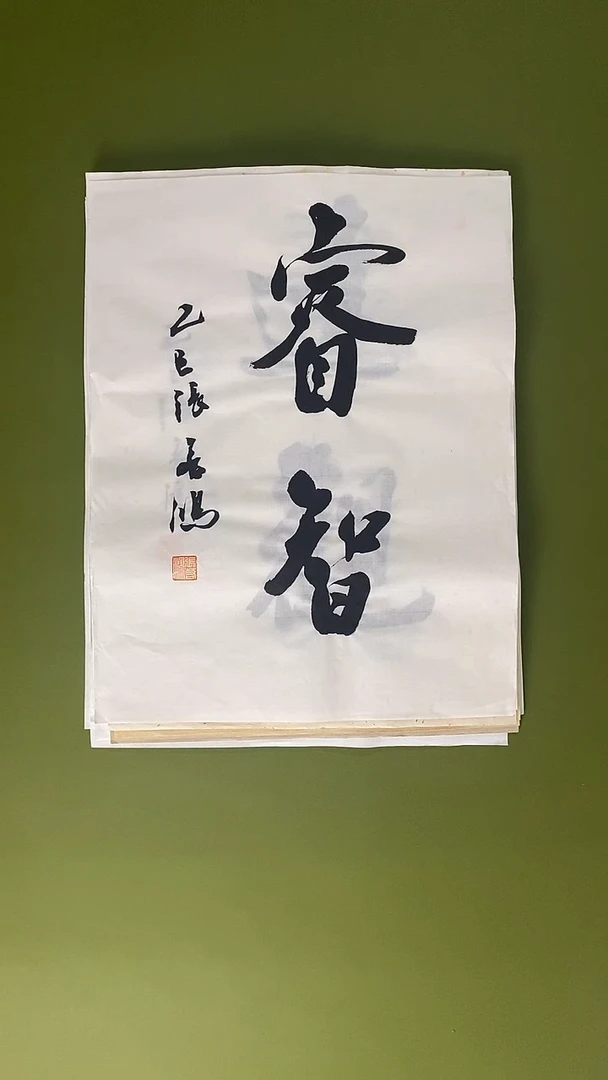 睿智
乙巳張若鴻